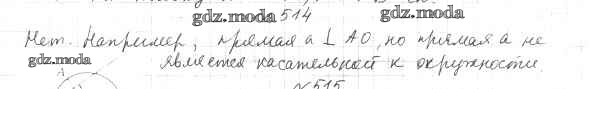 gdz.moda 514 gdz.moda
Нет. Например, прямая a ⊥ AO, но прямая a не
gdz.moda является касательной к окружности.
A
№515